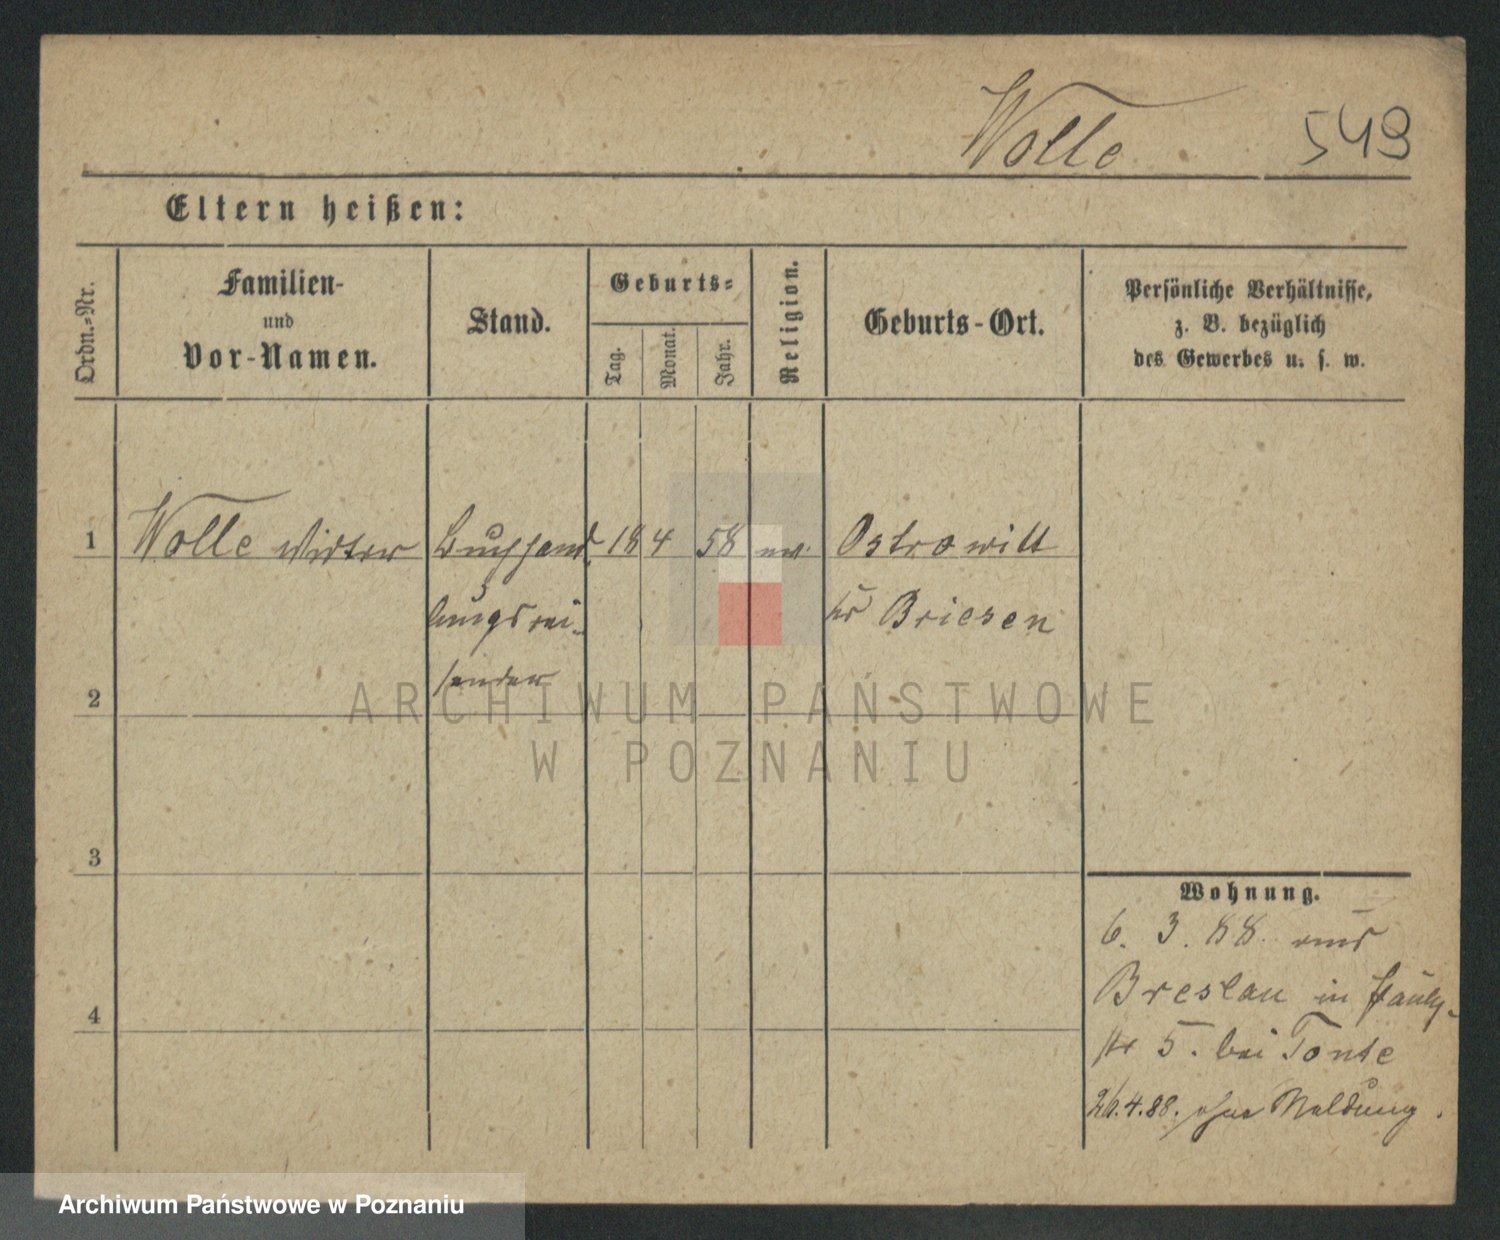 Wolle 549
Eltern heißen:
Ordn.-Nr.
Familien-
und
Vor-Namen.
Stand.
Geburts-
Tag.
Monat.
Jahr.
Religion.
Geburts-Ort.
Persönliche Verhältnisse,
z. B. bezüglich
des Gewerbes u. s. w.
1 Wolle Buchhand 18 4 58 ev. Ostrowitt
lungsrei- Briesen
sender
2
ARCHIWUM PAŃSTWOWE
W POZNANIU
3
Wohnung.
6. 3. 88. aus
Breslau in
str 5. bei Tonte
4
26.4.88. ohne Meldung.
Archiwum Państwowe w Poznaniu